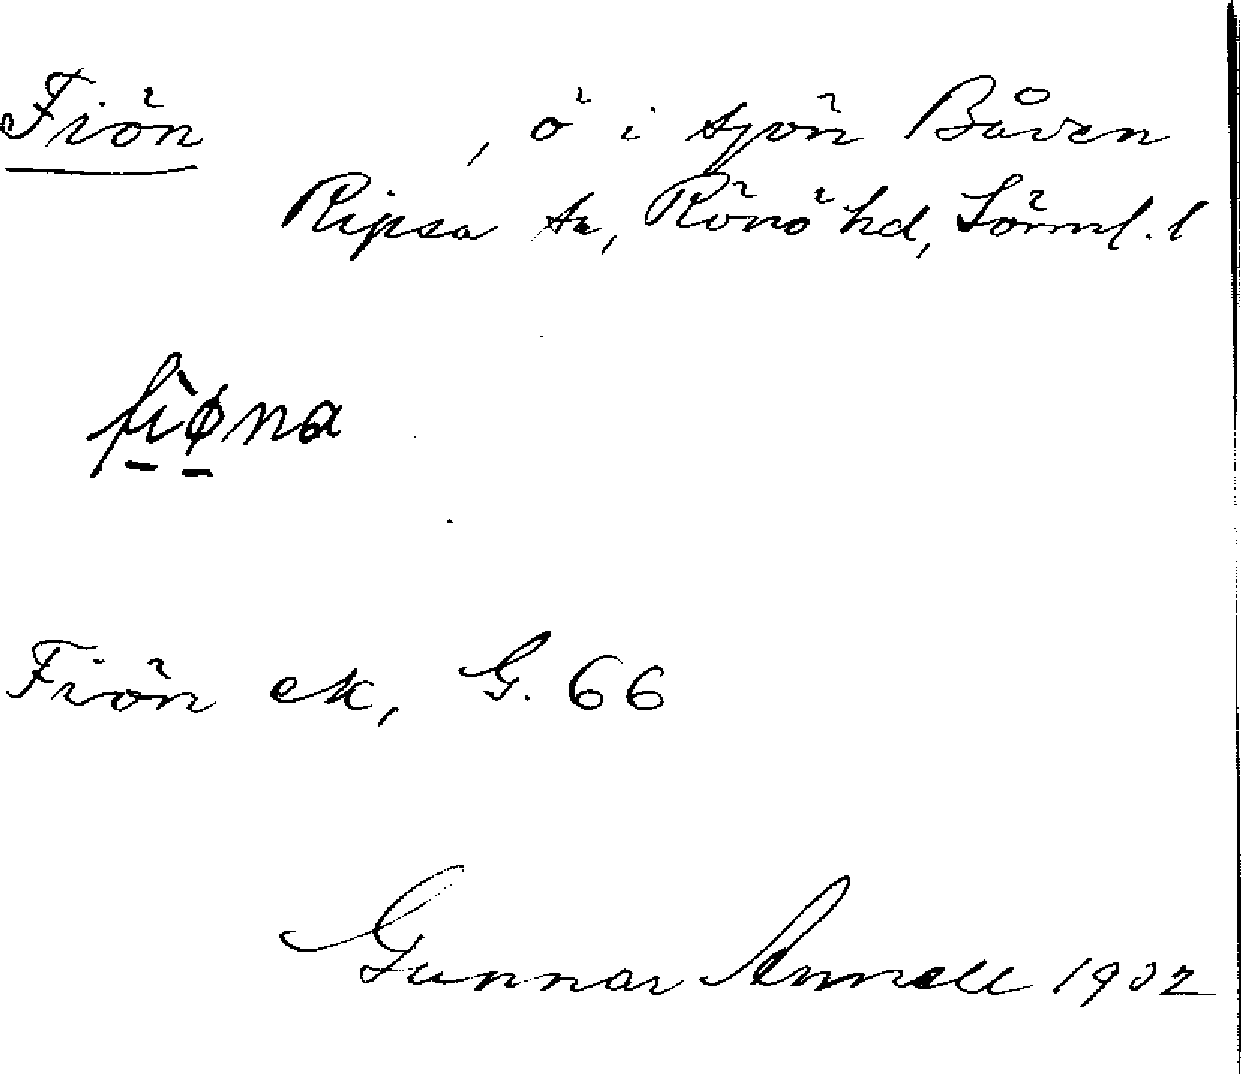 Fiön , ö i sjön Båven
Ripsa sn, Rönö hd, Sörml. l
fìøna
Fiön ek, G. 66
Gunnar Annell 1932